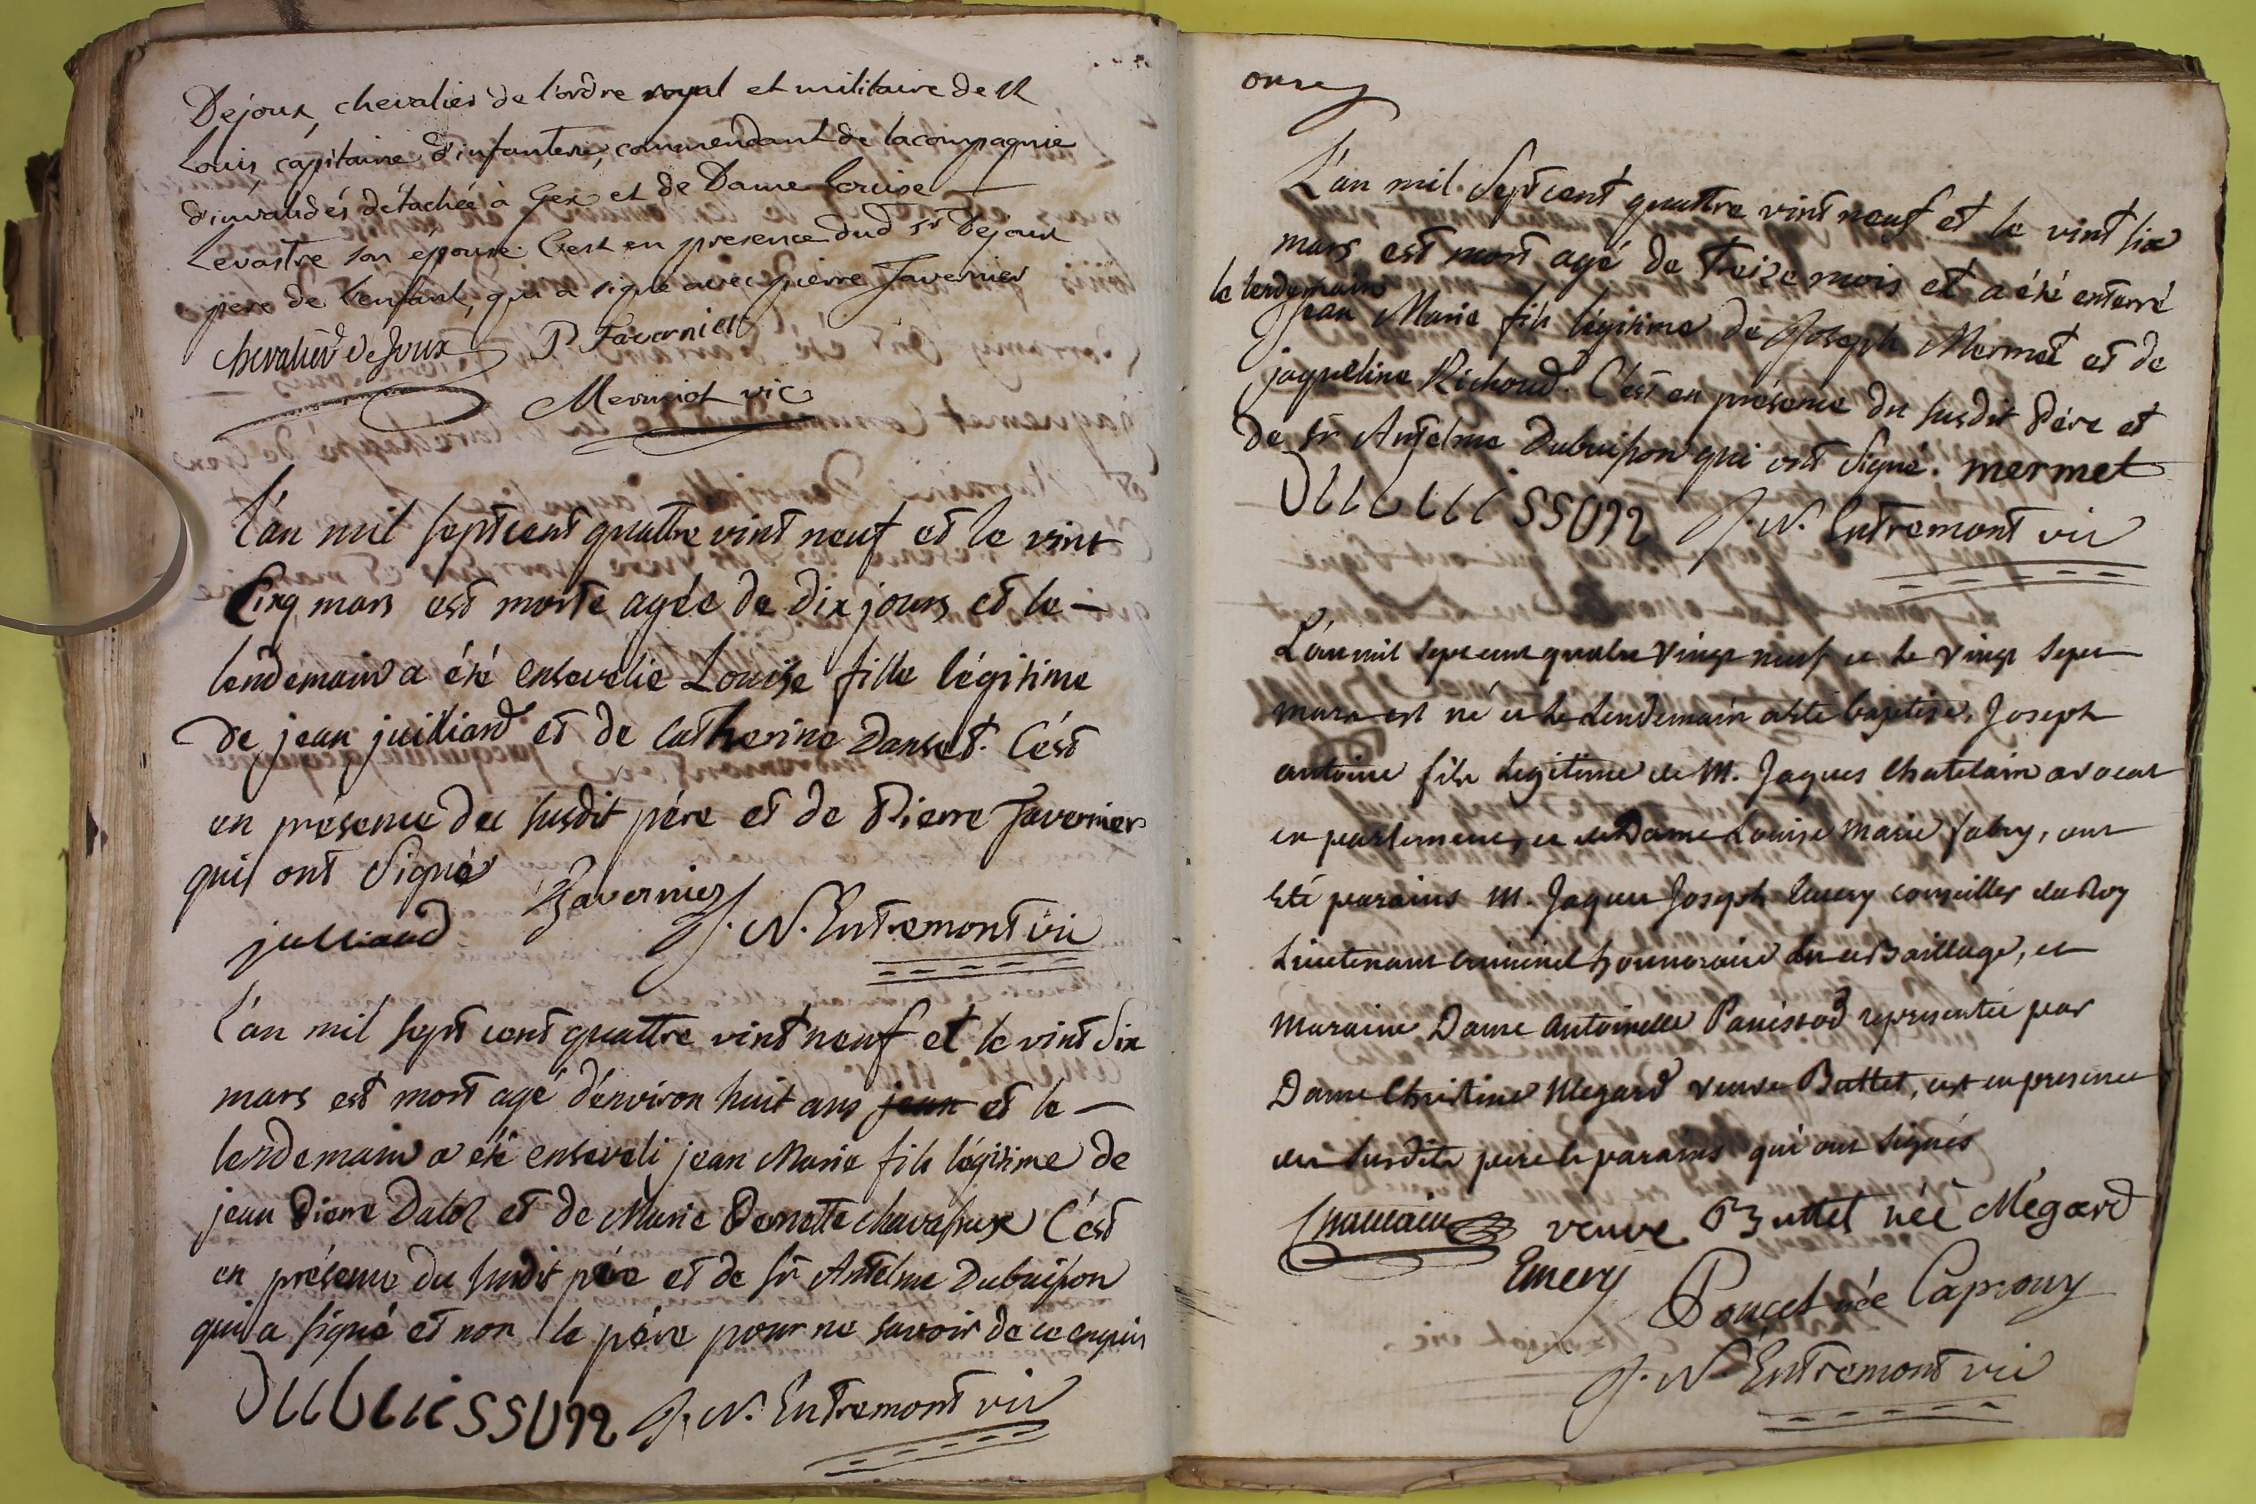 Dejoux, chevalier de l'ordre royal et militaire de St
Louis, capitaine d'infanterie, commendant de la compagnie
d'invalides détachée à Gex et de Dame Louise
Levastre son épouse. C'est en presence dud Sr Dejoux
pere de l'enfant, qui a signé avec pierre Tavernier
chevalier deJoux P. Tavernier
Mermiot vic
L'an mil sept cent quattre vint neuf et le vint
Cinq mars est morte agée de dix jours et le
lendemain a été ensevelie Louise fille légitime
de jean juilliard et de Catherine Danset. C'est
en présence du susdit pére et de Pierre Tavernier
qui ont signé
Tavernier
julliard J. N. Entremont vic
L'an mil sept cent quattre vint neuf et le vint six
mars est mort agé d'environ huit ans jean et le
lendemain a été enseveli jean Marie fils légitime de
jean Pierre Datoz et de Marie Pernette Chavassux C'est
en présence du susdit pére et de Sr Antelme Dubuisson
qui a signé et non le pére pour ne savoir de ce enquis
Dubuisson J. N. Entremont vic
onze
L'an mil sept cent quattre vint neuf et le vint six
mars est mort agé de treize mois et a été enterré
le lendemain
jean Marie fils légitime de Joseph Mermet et de
jaqueline Richoud. C'est en présence du susdit Pére et
de Sr Antelme Dubuisson qui ont signé. mermet
Dubuisson J. N. Entremont vic
L'an mil sept cent quatre vingt neuf et le vingt sept
mars est né et le lendemain a été baptisé, Joseph
antoine fils legitime de M. Jaques Chatelain avocat
en parlement, et de Dame Louise Marie fabry, ont
été parains M. Jaques Joseph Emery conseiller du Roy
Lieutenant criminel honnoraire en ce Baillage, et
maraine Dame Antoinette Panissod representée par
Dame Christine Megard veuve Buttet, c'est en presence
des susdits pere et parains qui ont signés
Chatelain veuve Buttet née Mégard
Emery Poncet née Caprony
J. N. Entremont vic